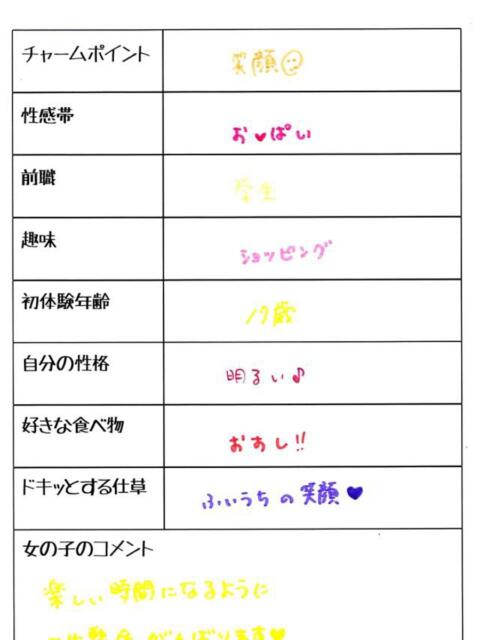 チャームポイント 笑顔☺
性感帯 お♥ぱい
前職 学生
趣味 ショッピング
初体験年齢 17歳
自分の性格 明るい♪
好きな食べ物 おすし!!
ドキッとする仕草 ふいうちの笑顔♥
女の子のコメント
楽しい時間になるように
がんばります♥